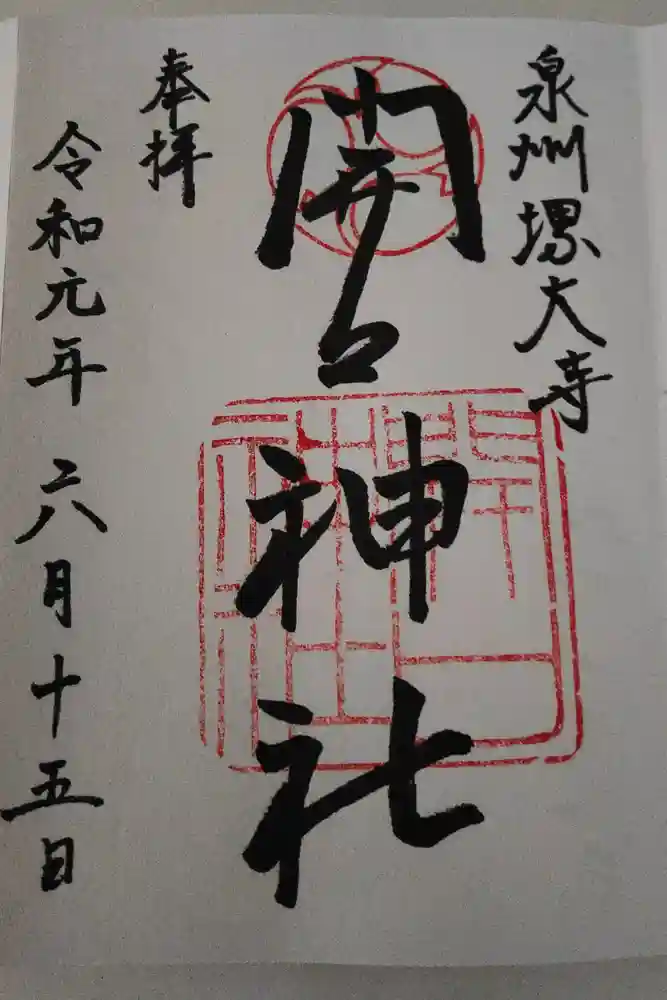 泉州堺大寺
開口神社
奉拝
令和元年六月十五日
開口神社